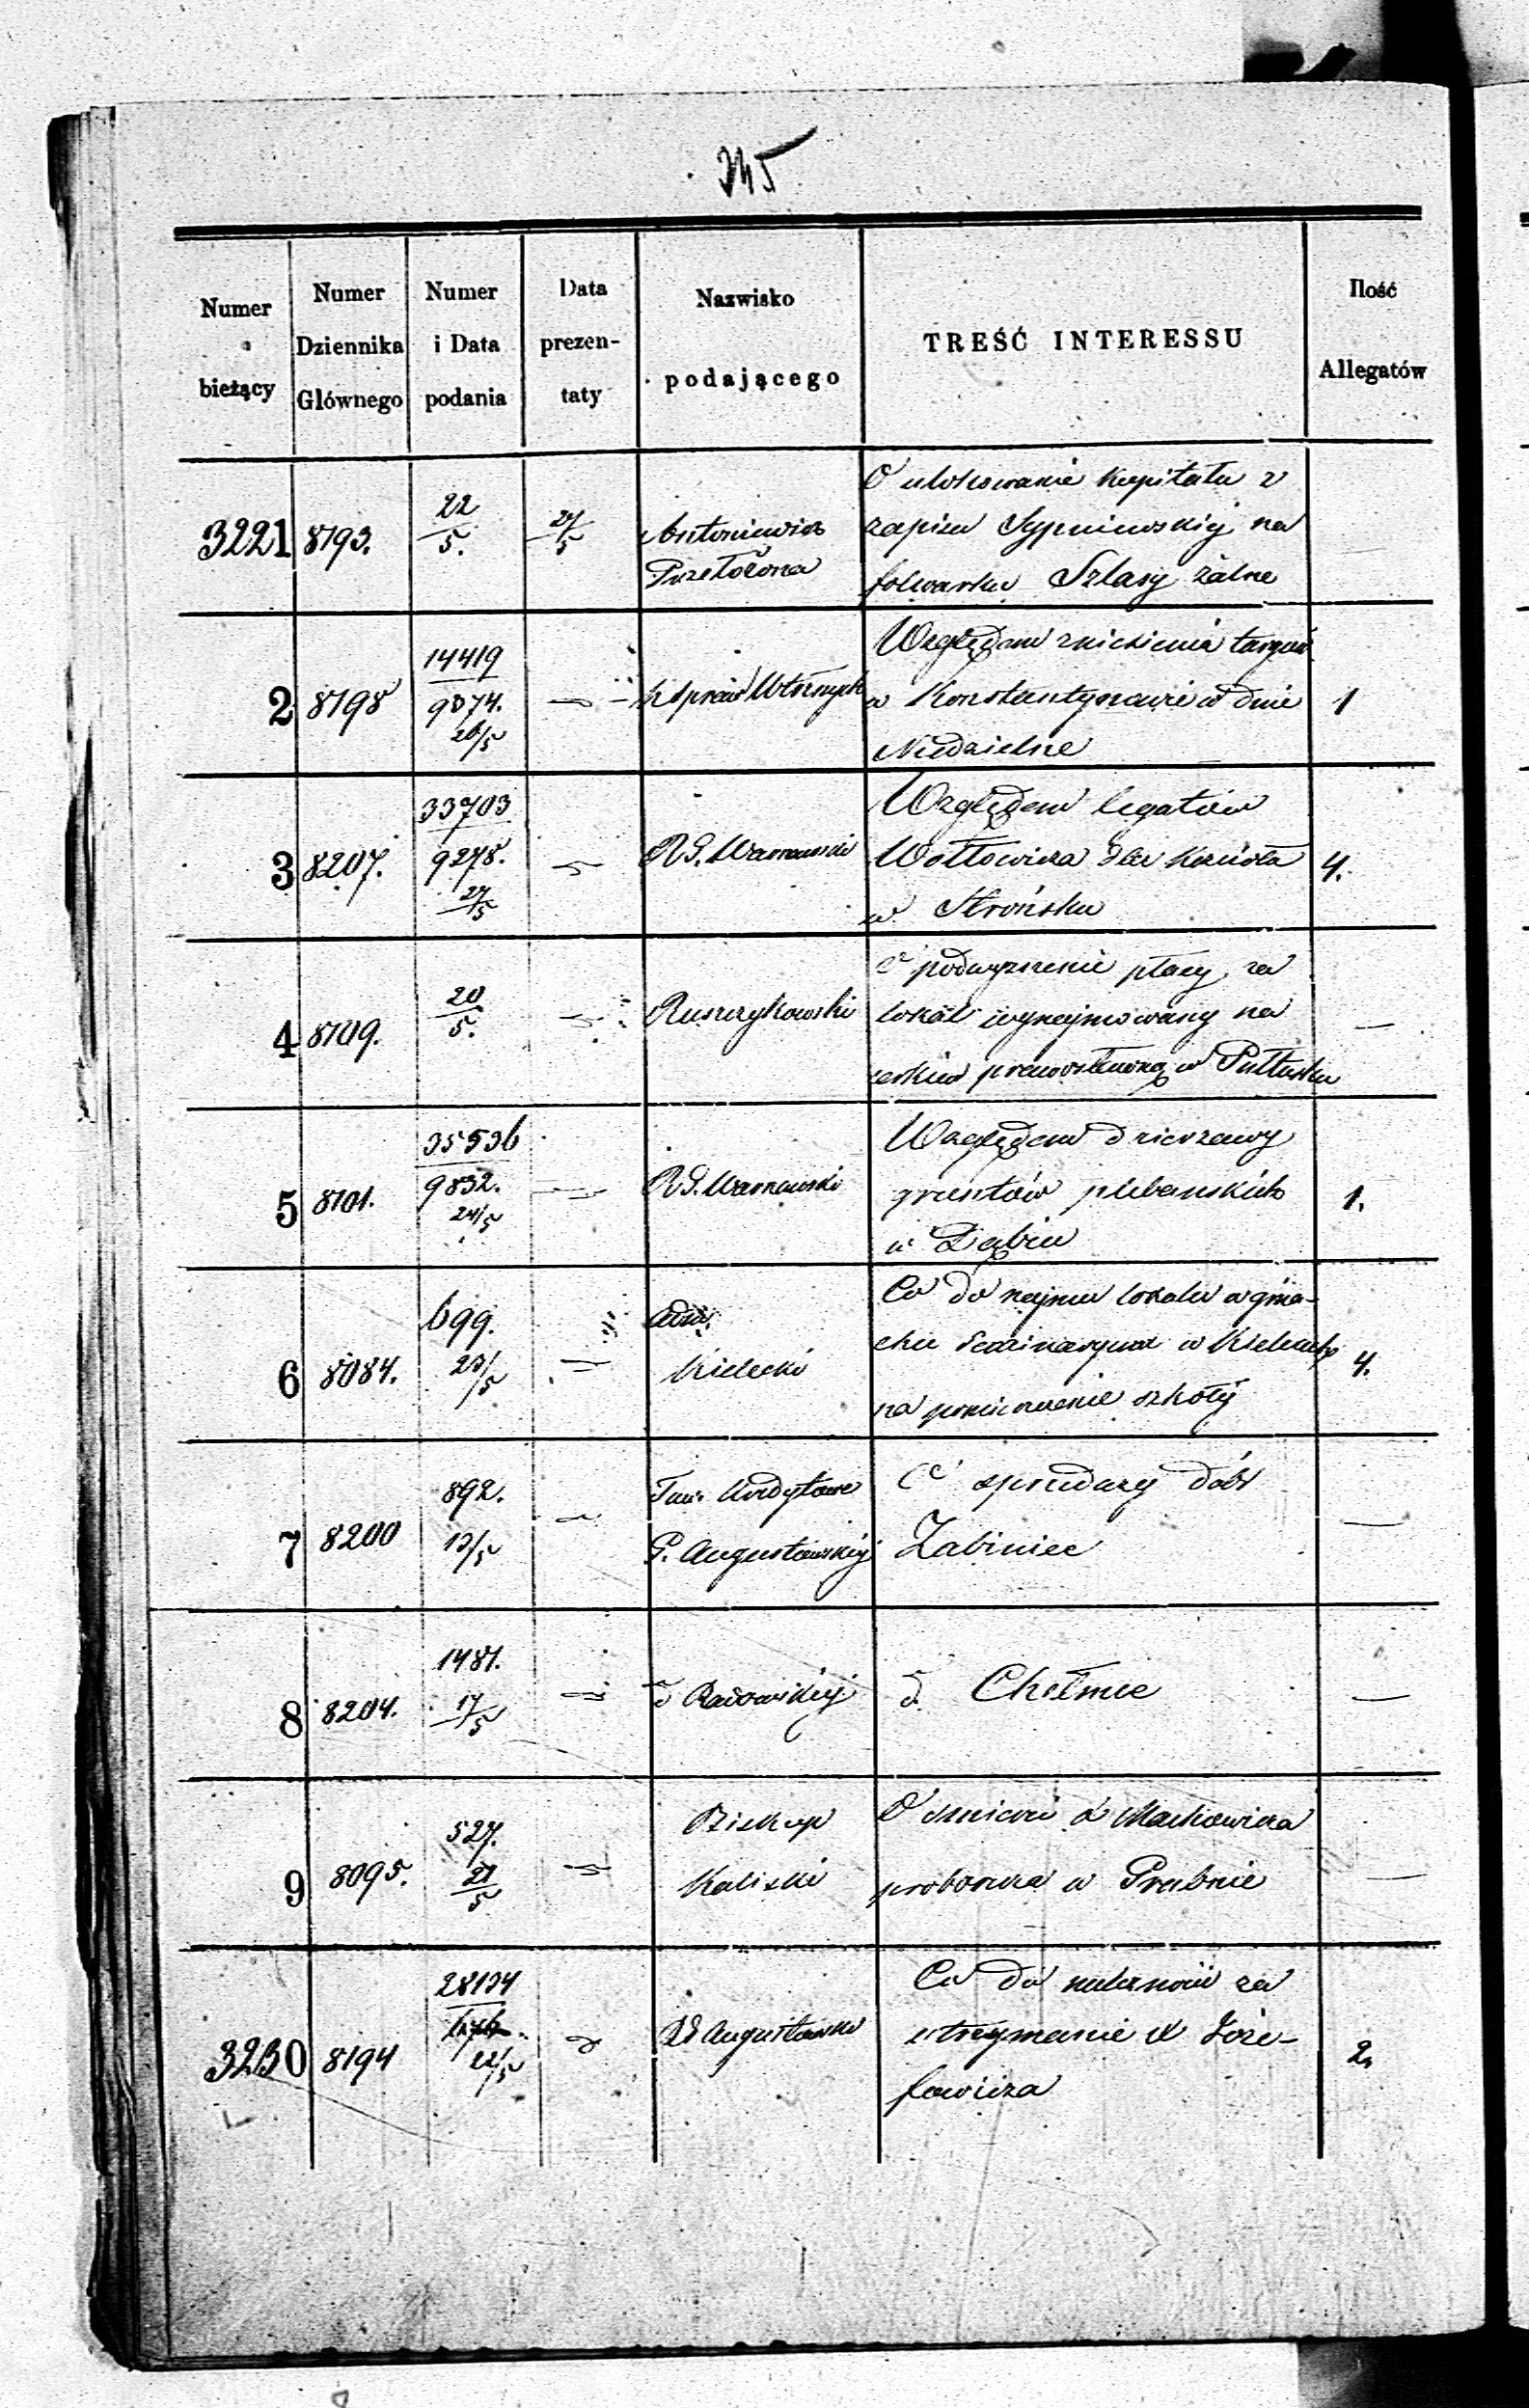 345
Numer bieżący
Numer Dziennika Głównego
Numer i Data podania
Data prezen-taty
Nazwisko podającego
TREŚĆ INTERESSU
Ilość Allegatów
3221 8193. 22/5. 27/5 Antoniewicz
Przełożona
O ulokowanie kapitału z
zapisu Sypniewskiej na
folwarku Szlasy
—
2 8198 14419
9074.
26/5
Względem zniesienia targów
w Konstantynowie w dnie
Niedzielne
1
3 8207. 33703
9278.
27/5
R.G. Warszawski
Względem legatów
Wołłowicza dla Kościoła
w Strońsku
4.
4 8109. 20/5. Ruszczykowski
O podwyższenie płacy za
lokal wynajmowany na
cerkiew prawosławną w Pułtusku
—
5 8101. 35536
9832.
24/5
R.G. Warszawski
Względem dzierżawy
gruntów plebańskich
w Dąbiu
1.
6 8084. 699.
23/5
Adm.
Kielecki
Co do najmu lokalu w gma-
chu Seminaryum w Kielcach
na pomieszczenie szkoły
4.
7 8200 892.
13/5
Tow. Kredytowe
G. Augustowskiej
O sprzedaży dóbr
Żabiniec
—
8 8204. 1481.
17/5
d Radomskiej
d. Chełmce
—
9 8095. 527.
21/5
Biskup
Kaliski
O śmierci X Mackiewicza
proboszcza w Grabnie
—
3230 8194 28134
22/5
RG Augustowski
Co do należności za
utrzymanie X Józe-
fowicza
2.